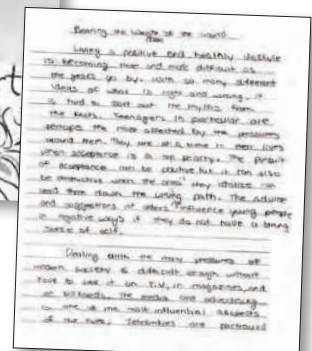 Bearing the Weight of the World
Living a positive and healthy lifestyle
is becoming more and more difficult as
the years go by. With so many different
ideas of what is right and wrong, it
is hard to sort out the myths from
the facts. Teenagers in particular are
perhaps the most affected by the pressures
around them. They are at a time in their lives
when acceptance is a top priority. The pursuit
of acceptance can be positive, but it can also
be destructive when the ones they idolize can
lead them down the wrong path. The advice
and suggestions of others influence young people
in negative ways if they do not have a strong
sense of self.
Dealing with the many pressures of
modern society is difficult enough without
have to see it on T.V., in magazines, and
on billboards. The media and advertising
is one of the most influential aspects
of our lives. Celebrities are portrayed